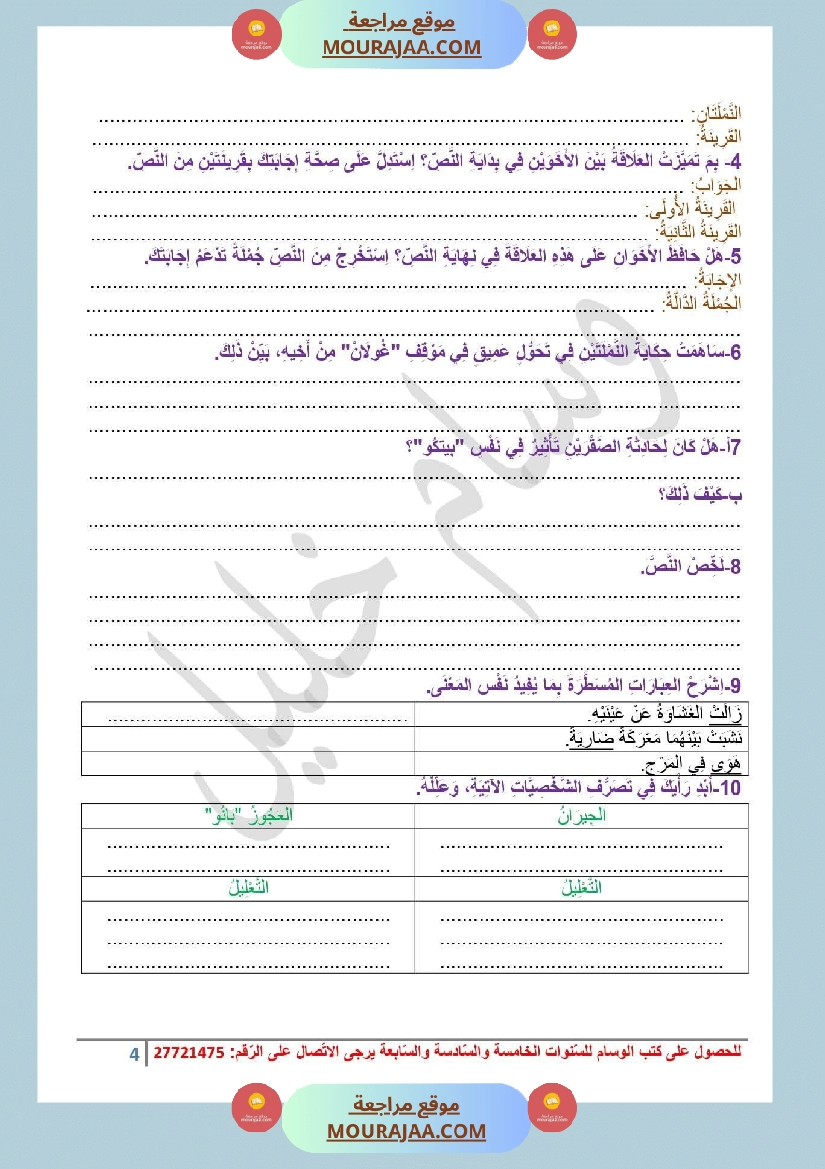 موقع مراجعة
MOURAJAA.COM
النَّمْلَتَانِ: ........................................................................................................
القَرِينَةُ: ........................................................................................................
4- بِمَ تَمَيَّزَتْ العَلَاقَةُ بَيْنَ الأَخَوَيْنِ فِي بِدَايَةِ النَّصّ؟ اِسْتَدِلَّ عَلَى صِحَّةِ إِجَابَتِكَ بِقَرِينَتَيْنِ مِنَ النَّصّ.
الجَوَابُ: ........................................................................................................
القَرِينَةُ الأُولَى: ........................................................................................................
القَرِينَةُ الثَّانِيَةُ: ........................................................................................................
5-هَلْ حَافَظَ الأَخَوَانِ عَلَى هَذِهِ العَلَاقَة فِي نِهَايَةِ النَّصّ؟ اِسْتَخْرِجْ مِنَ النَّصّ جُمْلَةً تَدْعَمُ إِجَابَتَكَ.
الإِجَابَةُ: ........................................................................................................
الجُمْلَةُ الدَّالَّةُ: ........................................................................................................
........................................................................................................
6-سَاهَمَتْ حِكَايَةُ النَّمْلَتَيْنِ فِي تَحَوُّلٍ عَمِيقٍ فِي مَوْقِفِ "غُولَانْ" مِنْ أَخِيهِ، بَيِّنْ ذَلِكَ.
........................................................................................................
........................................................................................................
........................................................................................................
7أ-هَلْ كَانَ لِحَادِثَةِ الصَّقْرَيْنِ تَأْثِيرٌ فِي نَفْس "بِيتكُو"؟
........................................................................................................
ب-كَيْفَ ذَلِكَ؟
........................................................................................................
........................................................................................................
8-لَخِّصْ النَّصَّ.
........................................................................................................
........................................................................................................
........................................................................................................
........................................................................................................
9-اِشْرَحْ العِبَارَاتِ المُسَطَّرَةَ بِمَا يُفِيدُ نَفْس المَعْنَى.
زَالَتْ الغَشَاوَةُ عَنْ عَيْنَيْهِ. ....................................................
نَشَبَتْ بَيْنَهُمَا مَعْرَكَةٌ ضَارِيَةٌ.
هَوَى فِي المَرْجِ.
10-أَبْدِ رَأْيَكَ فِي تَصَرُّف الشَّخْصِيَّاتِ الآتِيَةِ، وَعَلِّلْهُ.
الجِيرَانُ العَجُوزُ "بَانُو"
.................................................... ....................................................
.................................................... ....................................................
التَّعْلِيلُ التَّعْلِيلُ
.................................................... ....................................................
.................................................... ....................................................
.................................................... ....................................................
وسام خليل
للحصول على كتب الوسام للسّنوات الخامسة والسّادسة والسّابعة يرجى الاتّصال على الرّقم: 27721475 4
موقع مراجعة
MOURAJAA.COM